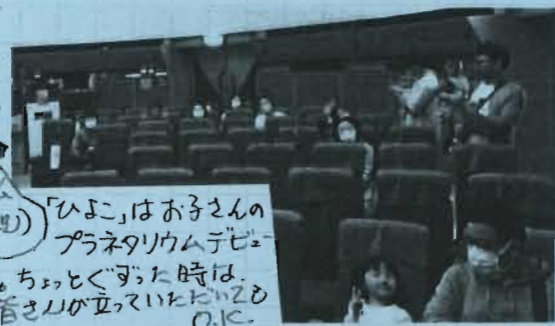 「ひよこ」はお子さんの
プラネタリウムデビュー
ちょっとぐずった時は、
皆さんが立っていただいても
O.K.